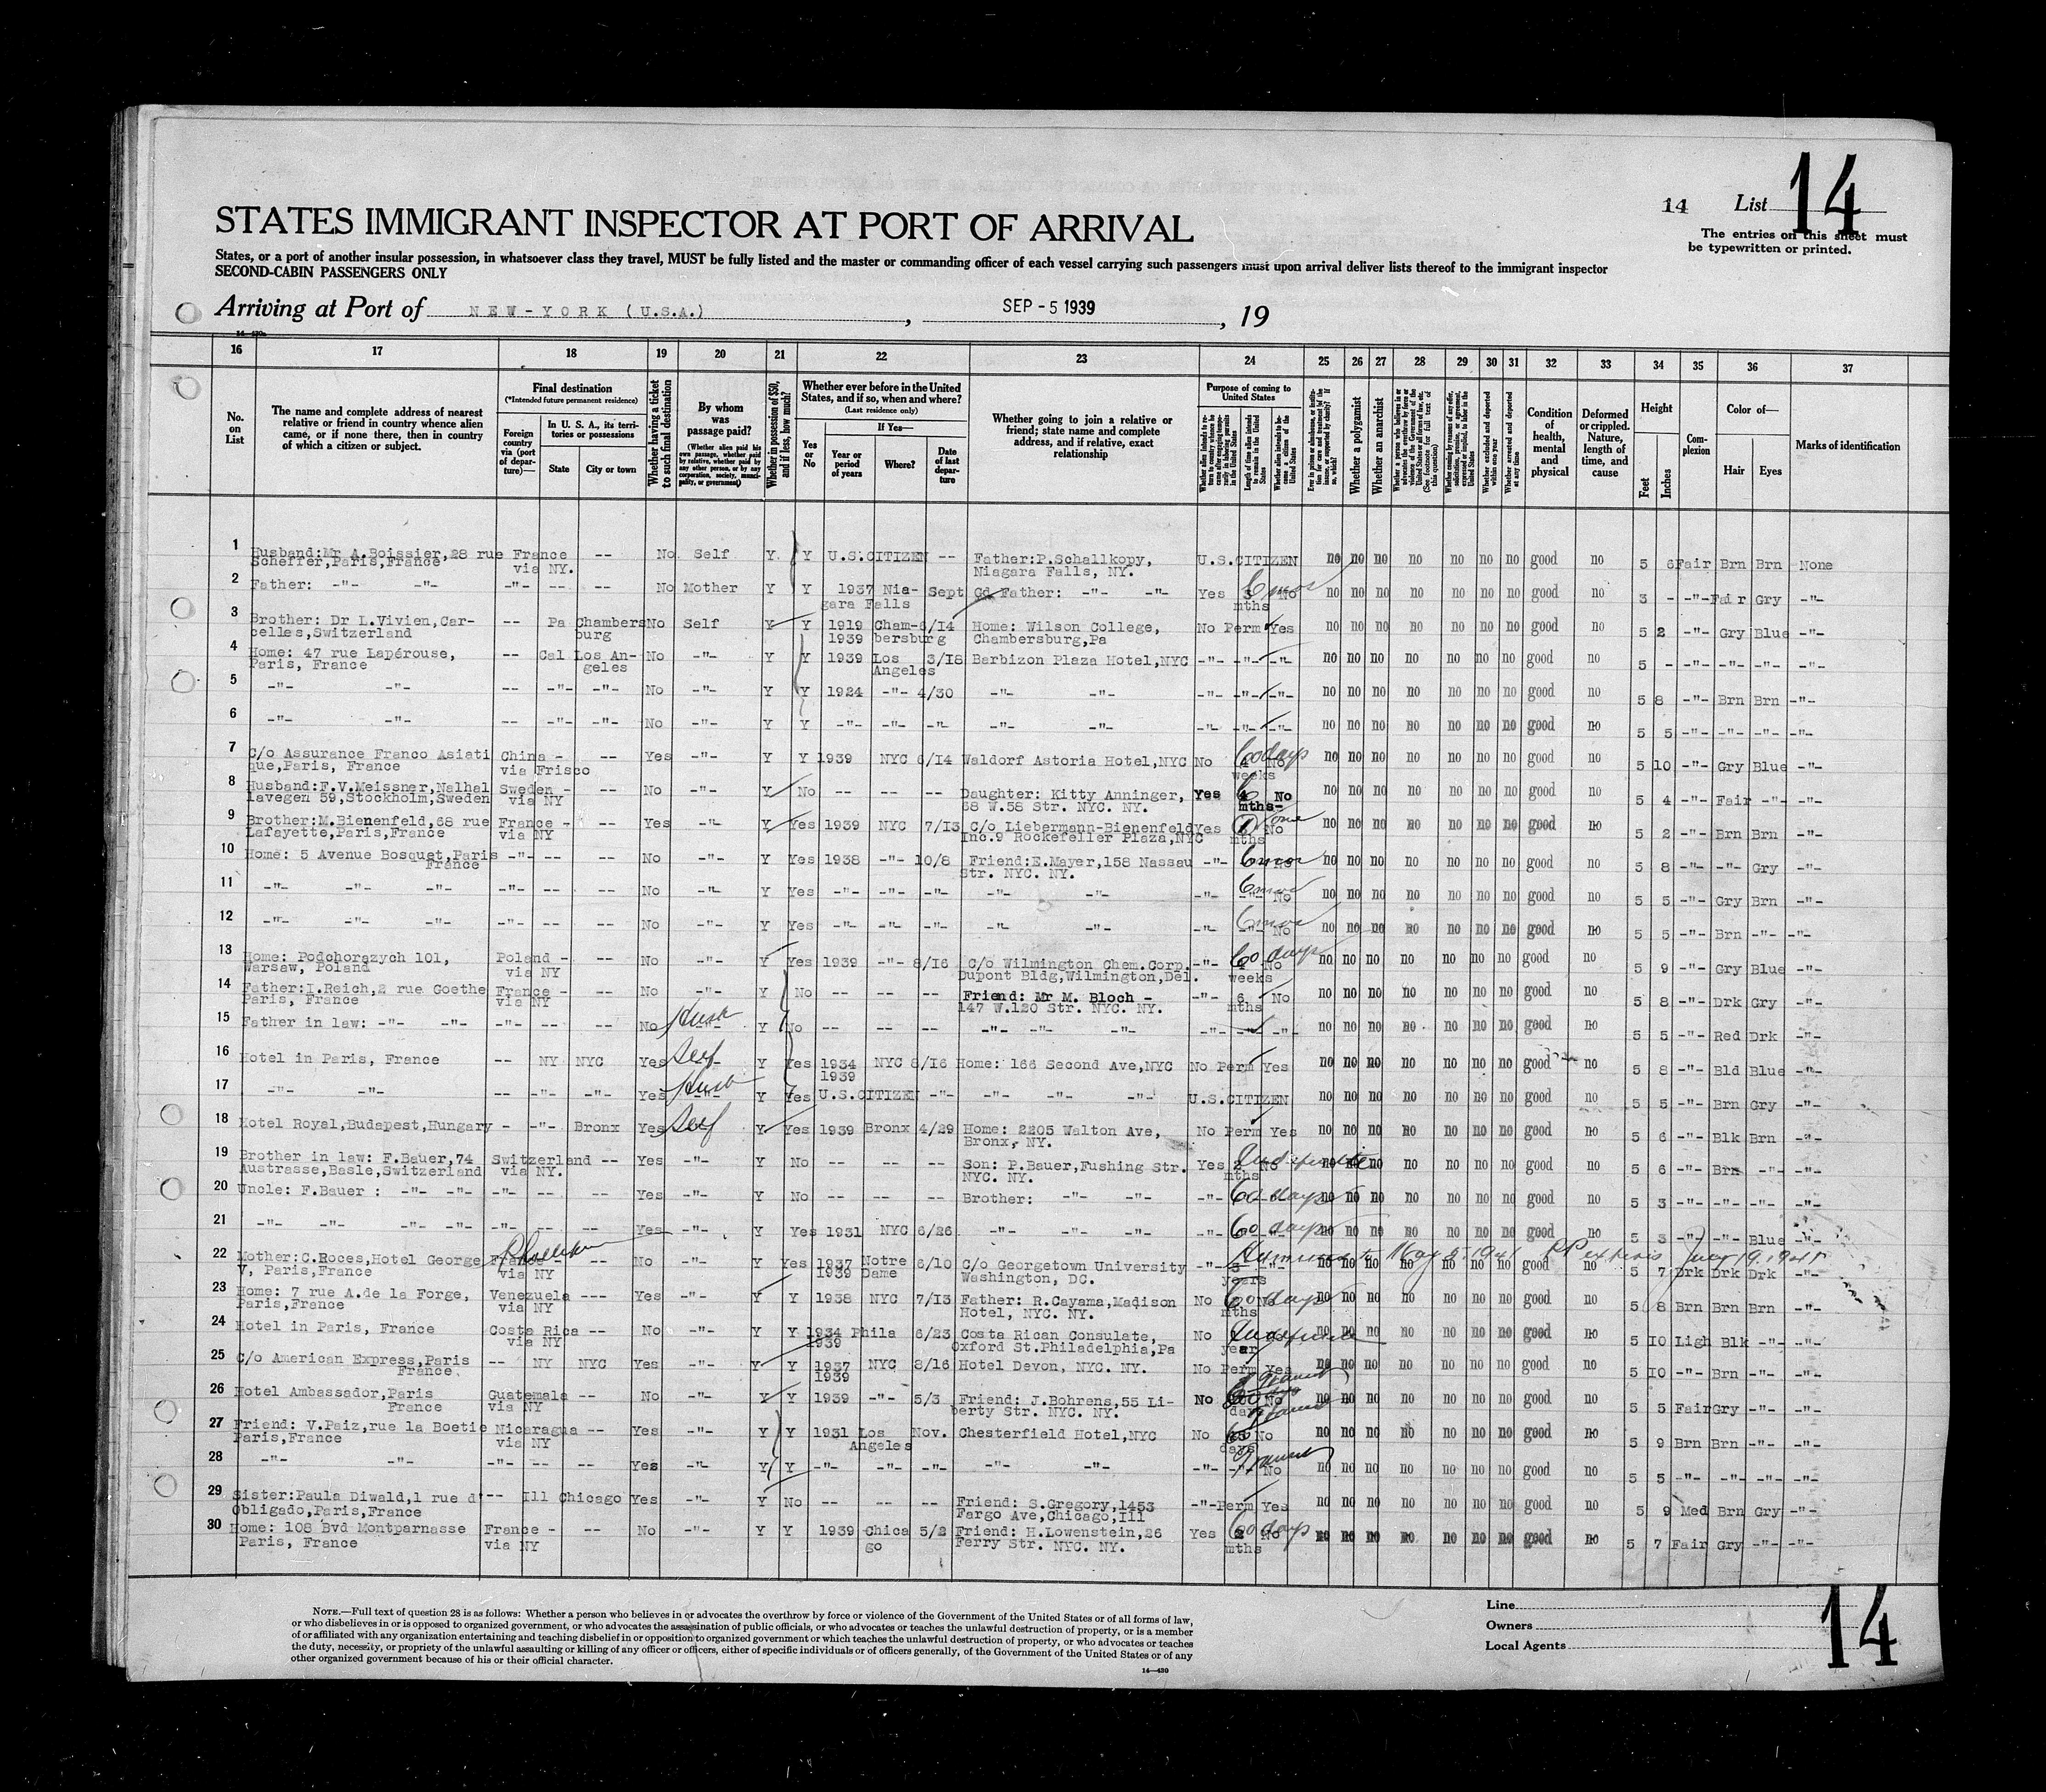 14 List 14
STATES IMMIGRANT INSPECTOR AT PORT OF ARRIVAL
The entries on this sheet must
be typewritten or printed.
States, or a port of another insular possession, in whatsoever class they travel, MUST be fully listed and the master or commanding officer of each vessel carrying such passengers must upon arrival deliver lists thereof to the immigrant inspector
SECOND-CABIN PASSENGERS ONLY
Arriving at Port of NEW-YORK (U.S.A.), SEP - 5 1939, 19
16 17 18 19 20 21 22 23 24 25 26 27 28 29 30 31 32 33 34 35 36 37
No. on List
The name and complete address of nearest relative or friend in country whence alien came, or if none there, then in country of which a citizen or subject.
Final destination
(*Intended future permanent residence)
Foreign country via (port of departure)—
In U. S. A., its territories or possessions
State City or town
Whether having a ticket to such final destination
By whom was passage paid?
(Whether alien paid his own passage, whether paid by relative, whether paid by any other person, or by any corporation, society, municipality, or government)
Whether in possession of $50, and if less, how much?
Whether ever before in the United States, and if so, when and where?
(Last residence only)
Yes or No
If Yes—
Year or period of years Where? Date of last departure
Whether going to join a relative or friend; state name and complete address, and if relative, exact relationship
Purpose of coming to United States
Whether a polygamist
Whether an anarchist
Condition of health, mental and physical
Deformed or crippled. Nature, length of time, and cause
Height
Feet Inches
Complexion
Color of—
Hair Eyes
Marks of identification
1 Husband:Mr A.Boissier,28 rue France -- No Self Y Y U.S.CITIZEN -- Father:P.Schallkopy, U.S.CITIZEN no no no no no no no good no 5 6 Fair Brn Brn None
Scheffer,Paris,France via NY. Niagara Falls, NY.
2 Father: -"- -"- -"- -- -- No Mother Y Y 1937 Nia- Sept Gd Father: -"- -"- Yes 3 6 mos No no no no no no no no good no 3 - -"- Fair Gry -"-
gara Falls mths
3 Brother: Dr L.Vivien,Car- -- Pa Chambers No Self Y Y 1919 Cham- 6/14 Home: Wilson College, No Perm Yes no no no no no no no good no 5 2 -"- Gry Blue -"-
celles,Switzerland burg 1939 bersburg Chambersburg,Pa
4 Home: 47 rue Lapérouse, -- Cal Los An- No -"- Y Y 1939 Los 3/18 Barbizon Plaza Hotel,NYC -"- -"- -"- no no no no no no no good no 5 - -"- -"- -"- -"-
Paris, France geles Angeles
5 -"- -"- -- -"- -"- No -"- Y Y 1924 -"- 4/30 -"- -"- -"- -"- -"- no no no no no no no good no 5 8 -"- Brn Brn -"-
6 -"- -"- -- -"- -"- No -"- Y Y -"- -"- -"- -"- -"- -"- -"- -"- no no no no no no no good no 5 5 -"- -"- -"- -"-
7 C/o Assurance Franco Asiati China - -- Yes -"- Y Y 1939 NYC 6/14 Waldorf Astoria Hotel,NYC No 60 days No no no no no no no no good no 5 10 -"- Gry Blue -"-
que,Paris, France via Frisco weeks
8 Husband:F.V.Meissner,Nalhal Sweden - -- No -"- Y No -- -- -- Daughter: Kitty Anninger, Yes 6 No no no no no no no no good no 5 4 -"- Fair -"- -"-
lavegen 59,Stockholm,Sweden via NY 68 W.58 Str. NYC. NY. mths-
9 Brother:M.Bienenfeld,68 rue France - -- Yes -"- Y Yes 1939 NYC 7/13 C/o Liebermann-Bienenfeld Yes 1 one No no no no no no no no good no 5 2 -"- Brn Brn -"-
Lafayette,Paris,France via NY Inc.9 Rockefeller Plaza,NYC mths
10 Home: 5 Avenue Bosquet,Paris -"- -- -- No -"- Y Yes 1938 -"- 10/8 Friend:E.Mayer,158 Nassau -"- 6 mos No no no no no no no no good no 5 8 -"- -"- Gry -"-
France Str. NYC. NY.
11 -"- -"- -"- -"- -- -- No -"- Y Yes -"- -"- -"- -"- -"- -"- 6 mos No no no no no no no no good no 5 5 -"- Gry Brn -"-
12 -"- -"- -"- -"- -- -- No -"- Y Yes -"- -"- -"- -"- -"- -"- 6 mos No no no no no no no no good no 5 5 -"- Brn -"- -"-
13 Home: Podchorazych 101, Poland - -- No -"- Y Yes 1939 -"- 8/16 C/o Wilmington Chem.Corp. -"- 60 days No no no no no no no no good no 5 9 -"- Gry Blue -"-
Warsaw, Poland via NY Dupont Bldg,Wilmington,Del. weeks
14 Father:I.Reich,2 rue Goethe France - -- No -"- Y No -- -- -- Friend: Mr M. Bloch - -"- 6 No no no no no no no no good no 5 8 -"- Drk Gry -"-
Paris, France via NY 147 W.120 Str. NYC. NY. mths
15 Father in law: -"- -"- -- -- -- No Husb Y No -- -- -- -"- -"- -"- -"- -"- -"- no no no no no no no good no 5 5 -"- Red Drk -"-
16 Hotel in Paris, France -- NY NYC Yes Self Y Yes 1934 NYC 8/16 Home: 166 Second Ave,NYC No Perm Yes no no no no no no no good no 5 8 -"- Bld Blue -"-
1939
17 -"- -"- -- -"- -"- Yes Husb Y Yes U.S.CITIZEN -"- -"- -"- -"- U.S.CITIZEN no no no no no no no good no 5 5 -"- Brn Gry -"-
18 Hotel Royal,Budapest,Hungary - -"- Bronx Yes Self Y Yes 1939 Bronx 4/29 Home: 2205 Walton Ave, No Perm Yes no no no no no no no good no 5 6 -"- Blk Brn -"-
Bronx, NY.
19 Brother in law: F.Bauer,74 Switzerland -- Yes -"- Y No -- -- -- Son: P.Bauer,Fushing Str. Yes 2 No no no no no no no no good no 5 6 -"- Brn -"- -"-
Austrasse,Basle,Switzerland via NY. NYC. NY. mths
20 Uncle: F.Bauer : -"- -"- -"- -- -- Yes -"- Y No -- -- -- Brother: -"- -"- -"- 60 days no no no no no no no good no 5 3 -"- -"- -"- -"-
21 -"- -"- -"- -"- -"- -- -- Yes -"- Y Yes 1931 NYC 6/26 -"- -"- -"- 60 days no no no no no no no good no 5 3 -"- -"- Blue -"-
22 Mother:C.Roces,Hotel George France - -- No -"- Y Yes 1937 Notre 6/10 C/o Georgetown University -"- May 5. 1941 no no no no no no no good no 5 7 Drk Drk Drk -"-
V, Paris,France via NY 1939 Dame Washington, DC. years
23 Home: 7 rue A.de la Forge, Venezuela --- Yes -"- Y Y 1938 NYC 7/13 Father: R.Cayama,Madison No 60 days no no no no no no no good no 5 8 Brn Brn Brn -"-
Paris,France via NY Hotel, NYC. NY. mths
24 Hotel in Paris, France Costa Rica -- No -"- Y Y 1934 Phila 6/23 Costa Rican Consulate, No Indefinite no no no no no no no good no 5 10 Ligh Blk -"- -"-
via NY 1939 Oxford St.Philadelphia,Pa year
25 C/o American Express,Paris -- NY NYC Yes -"- Y Y 1937 NYC 8/16 Hotel Devon, NYC. NY. No Perm Yes no no no no no no no good no 5 10 -"- Brn -"- -"-
France. 1939
26 Hotel Ambassador,Paris Guatemala -- No -"- Y Y 1939 -"- 5/3 Friend: J.Bohrens,55 Li- No No no no no no no no no good no 5 5 Fair Gry -"- -"-
France via NY berty Str. NYC. NY. days
27 Friend: V.Paiz,rue la Boetie Nicaragua -- Yes -"- Y Y 1931 Los Nov. Chesterfield Hotel,NYC No No no no no no no no no good no 5 9 Brn Brn -"- -"-
Paris,France via NY Angeles days
28 -"- -"- -"- -- -- Yes -"- Y Y -"- -"- -"- -"- -"- -"- -"- Transit No no no no no no no no good no 5 5 -"- -"- -"- -"-
29 Sister:Paula Diwald,1 rue d' -- Ill Chicago Yes -"- Y No -- -- -- Friend: S.Gregory,1453 -"- Perm Yes no no no no no no no good no 5 9 Med Brn Gry -"-
Obligado,Paris,France Fargo Ave,Chicago,Ill
30 Home: 108 Bvd Montparnasse France - -- No -"- Y Y 1939 Chica 5/2 Friend: H.Lowenstein,26 Yes 60 days No no no no no no no no good no 5 7 Fair Gry -"- -"-
Paris, France via NY go Ferry Str. NYC. NY. mths
NOTE.—Full text of question 28 is as follows: Whether a person who believes in or advocates the overthrow by force or violence of the Government of the United States or of all forms of law,
or who disbelieves in or is opposed to organized government, or who advocates the assassination of public officials, or who advocates or teaches the unlawful destruction of property, or is a member
of or affiliated with any organization entertaining and teaching disbelief in or opposition to organized government or which teaches the unlawful destruction of property, or who advocates or teaches
the duty, necessity, or propriety of the unlawful assaulting or killing of any officer or officers, either of specific individuals or of officers generally, of the Government of the United States or of any
other organized government because of his or their official character.
14—430
Line
Owners
Local Agents
14